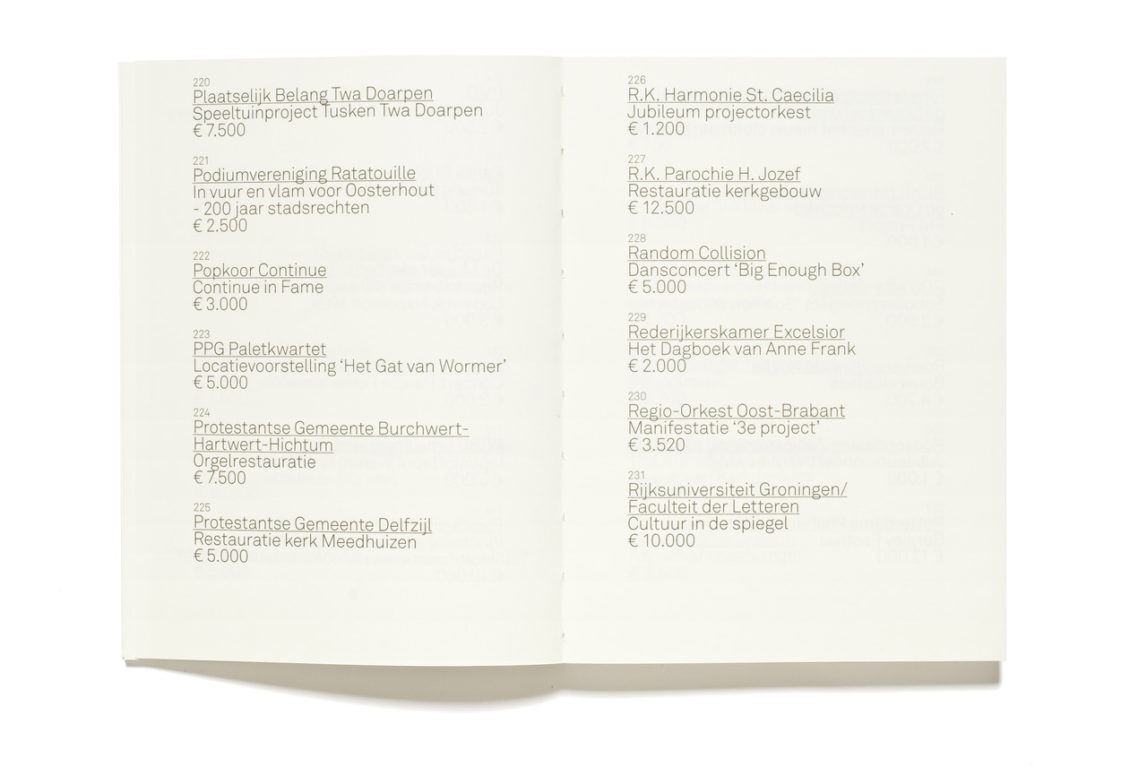 220
Plaatselijk Belang Twa Doarpen
Speeltuinproject Tusken Twa Doarpen
€ 7.500
221
Podiumvereniging Ratatouille
In vuur en vlam voor Oosterhout
- 200 jaar stadsrechten
€ 2.500
222
Popkoor Continue
Continue in Fame
€ 3.000
223
PPG Paletkwartet
Locatievoorstelling ‘Het Gat van Wormer’
€ 5.000
224
Protestantse Gemeente Burchwert-
Hartwert-Hichtum
Orgelrestauratie
€ 7.500
225
Protestantse Gemeente Delfzijl
Restauratie kerk Meedhuizen
€ 5.000
226
R.K. Harmonie St. Caecilia
Jubileum projectorkest
€ 1.200
227
R.K. Parochie H. Jozef
Restauratie kerkgebouw
€ 12.500
228
Random Collision
Dansconcert ‘Big Enough Box’
€ 5.000
229
Rederijkerskamer Excelsior
Het Dagboek van Anne Frank
€ 2.000
230
Regio-Orkest Oost-Brabant
Manifestatie ‘3e project’
€ 3.520
231
Rijksuniversiteit Groningen/
Faculteit der Letteren
Cultuur in de spiegel
€ 10.000